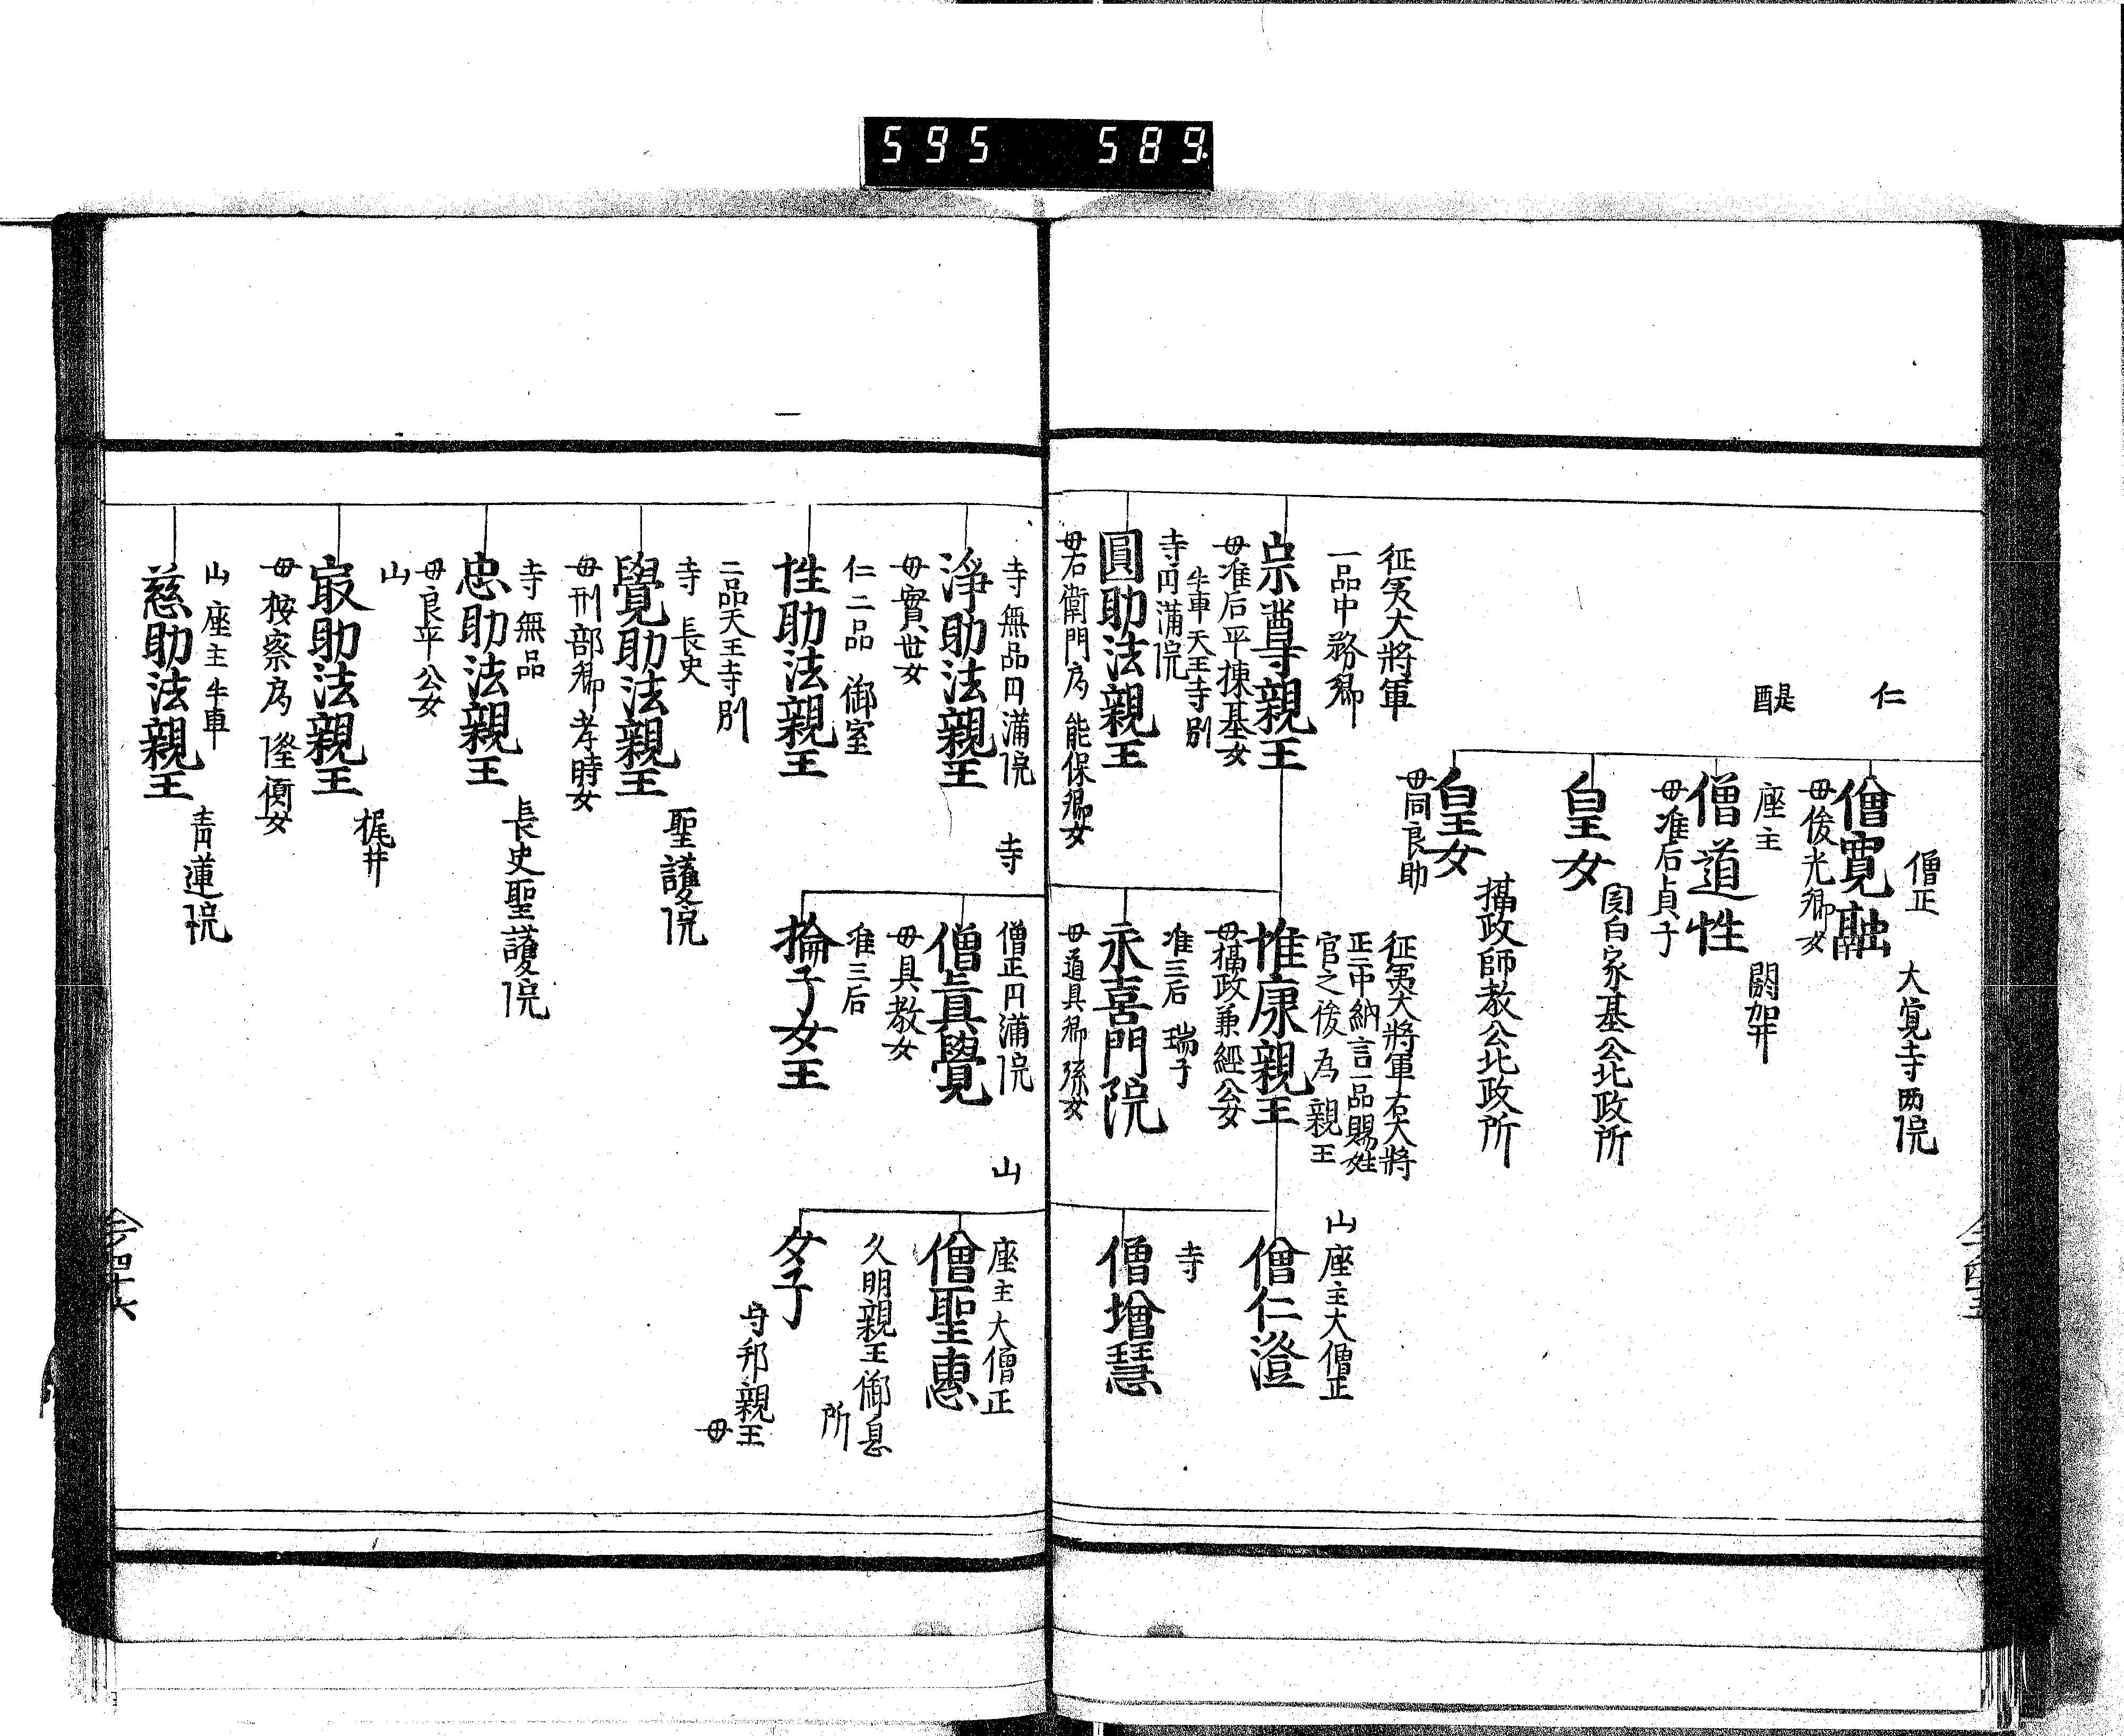 595 589
仁
僧正
大覚寺両院
僧寛融
母俊光卿女
醍
座主
僧道性
閼伽井
母准后貞子
皇女
関白家基公北政所
皇女
摂政師教公北政所
母同良助
征夷大将軍
一品中務卿
宗尊親王
母准后平棟基女
征夷大将軍右大将
正二中納言一品賜姓
官之後為親王
惟康親王
母摂政兼経公女
山座主大僧正
僧仁澄
寺
僧増慧
寺円満院
牛車天王寺別
圓助法親王
母右衛門為能保卿女
准三后 瑞子
永喜門院
母道具卿孫女
寺無品円満院
浄助法親王
母實世女
寺
僧正円満院
僧眞覺
母具教女
山
座主大僧正
僧聖惠
仁二品 御室
性助法親王
准三后
掄子女王
久明親王御息
所
女子
守邦親王
母
二品天王寺別
寺 長史
覺助法親王
聖護院
母刑部卿孝時女
寺無品
忠助法親王
長史聖護院
母良平公女
山
最助法親王
梶井
母按察為隆女
山座主牛車
慈助法親王
青蓮院